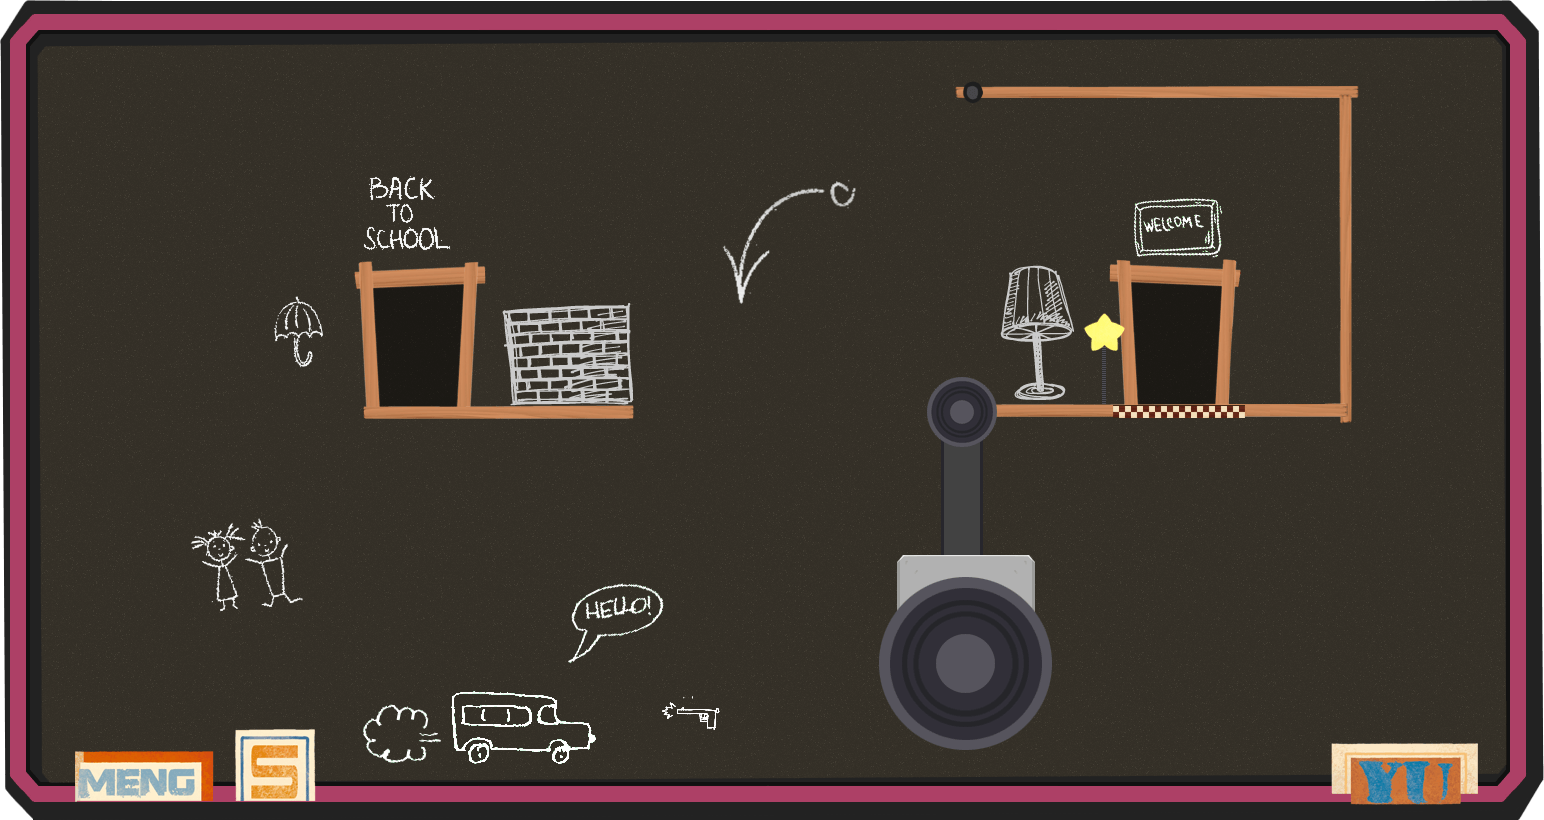 BACK
TO
SCHOOL
WELCOME
HELLO!
MENG
S
YU